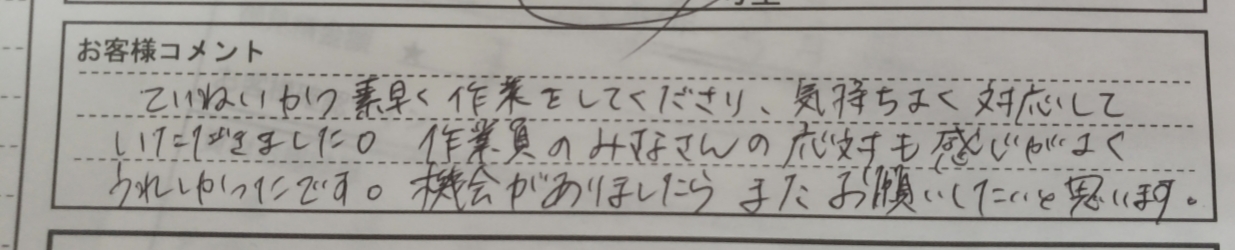 お客様コメント
ていねいかつ素早く作業をしてくださり、気持ちよく対応して
いただきました。作業員のみなさんの応対も感じがよく
うれしかったです。機会がありましたらまたお願いしたいと思います。